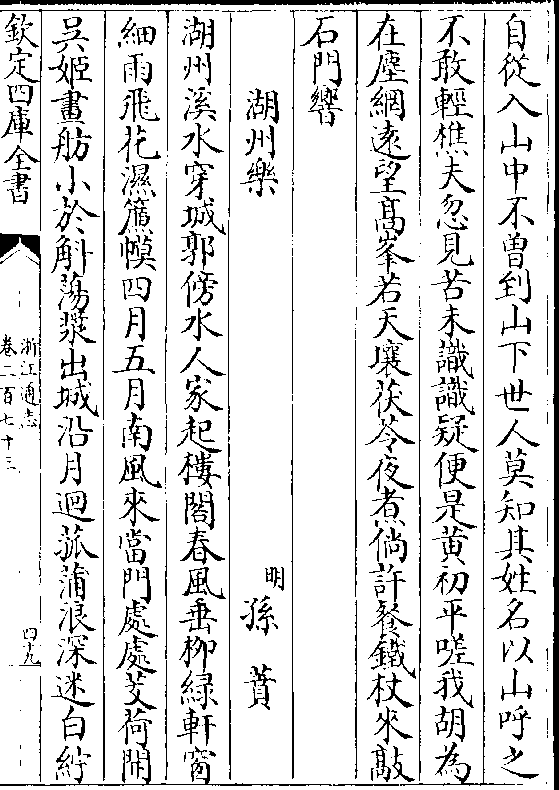 自從入山中不曽到山下世人莫知其姓名以山呼之
不敢輕樵夫忽見苦未識識疑便是黄初平嗟我胡為
在塵網逺望髙峯若天壤茯苓夜煮倘許餐鐵杖來敲
石門響
湖州樂
明
孫蕡
湖州溪水穿城郭傍水人家起樓閣春風垂柳緑軒窗
細雨飛花濕簾幙四月五月南風來當門處處芰荷開
吳姬畫舫小於斛蕩槳出城沿月迴菰蒲浪深迷白紵
欽定四庫全書
浙江通志
卷二百七十三
四九